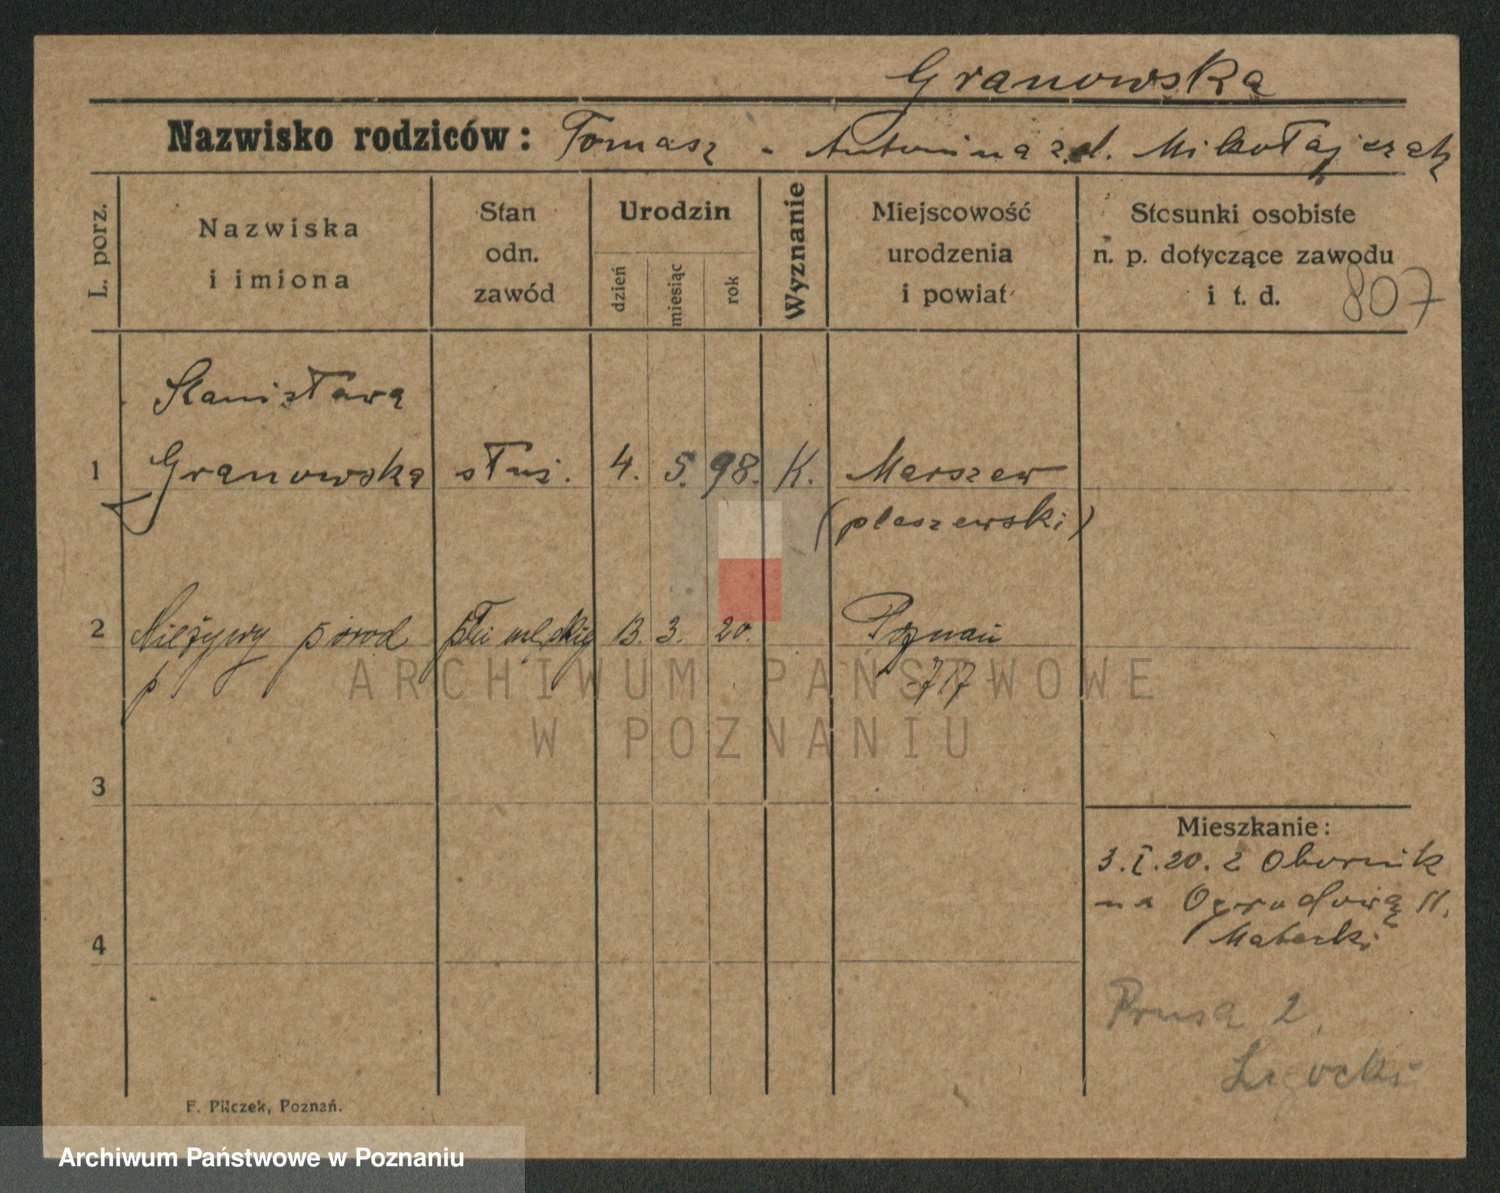 Granowska
Nazwisko rodziców: Tomasz - Antonina z d. Mikołajczak
L. porz.
Nazwiska
i imiona
Stan
odn.
zawód
Urodzin
dzień
miesiąc
rok
Wyznanie
Miejscowość
urodzenia
i powiat
Stosunki osobiste
n. p. dotyczące zawodu
i t. d.
807
Stanisława
1 Granowska służ. 4. 5. 98. K. Marszew
(pleszewski)
2 Nieżywy poród płci męskiej 13. 3. 20. Poznań
717
ARCHIWUM PAŃSTWOWE
W POZNANIU
3
Mieszkanie:
3.I.20. z Obornik
na Ogrodową 11.
4
Prusa 2.
Ligocki
F. Pilczek, Poznań.
Archiwum Państwowe w Poznaniu